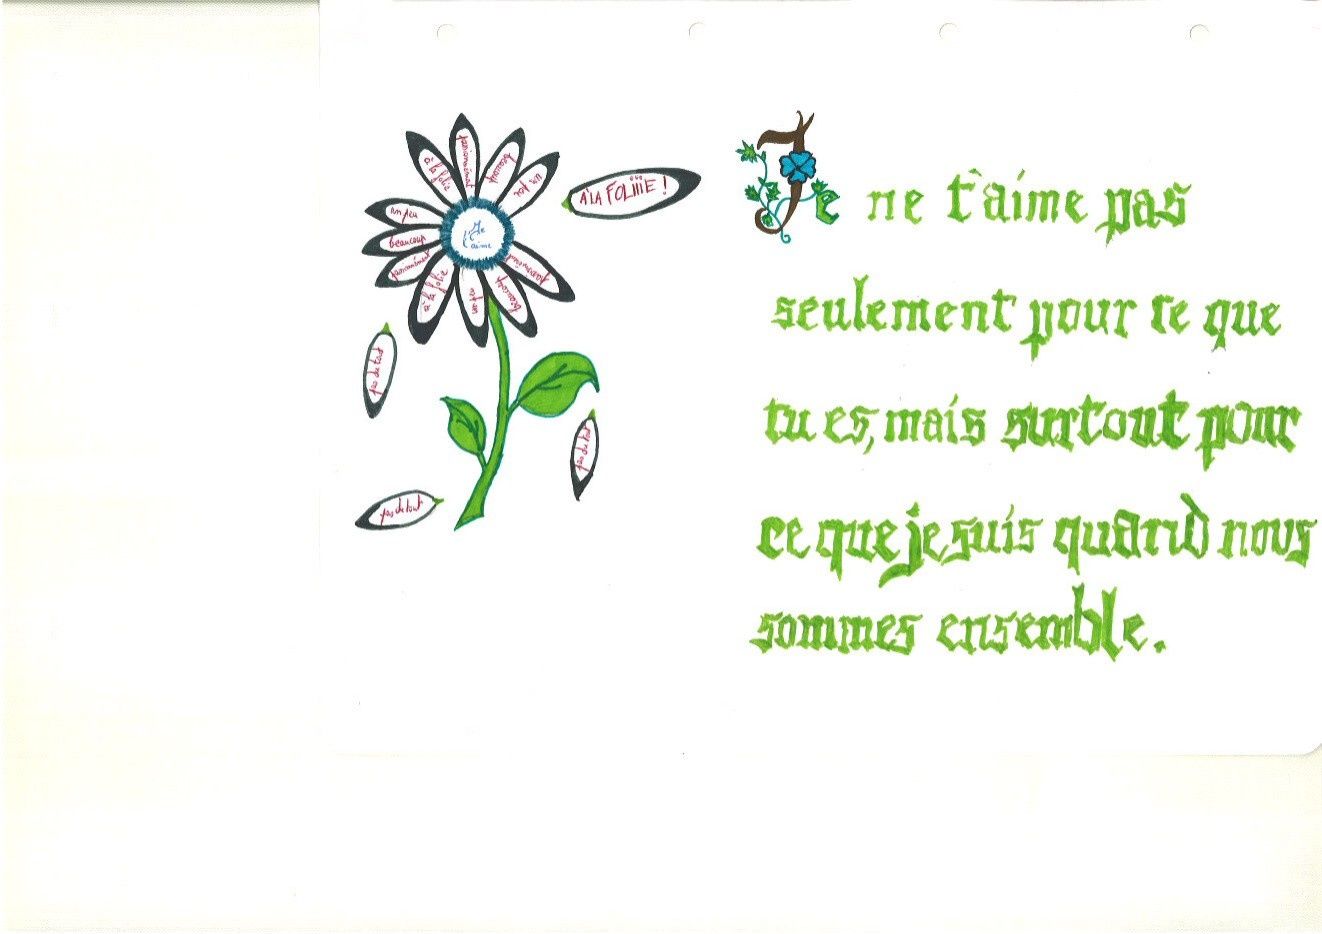 à la folie
passionnément
beaucoup
un peu
À LA FOLIIIE !
un peu
beaucoup
passionnément
à la folie
un peu
beaucoup
passionnément
Je
t'aime
pas du tout
pas du tout
pas du tout
Je ne t'aime pas
seulement pour ce que
tu es, mais surtout pour
ce que je suis quand nous
sommes ensemble.